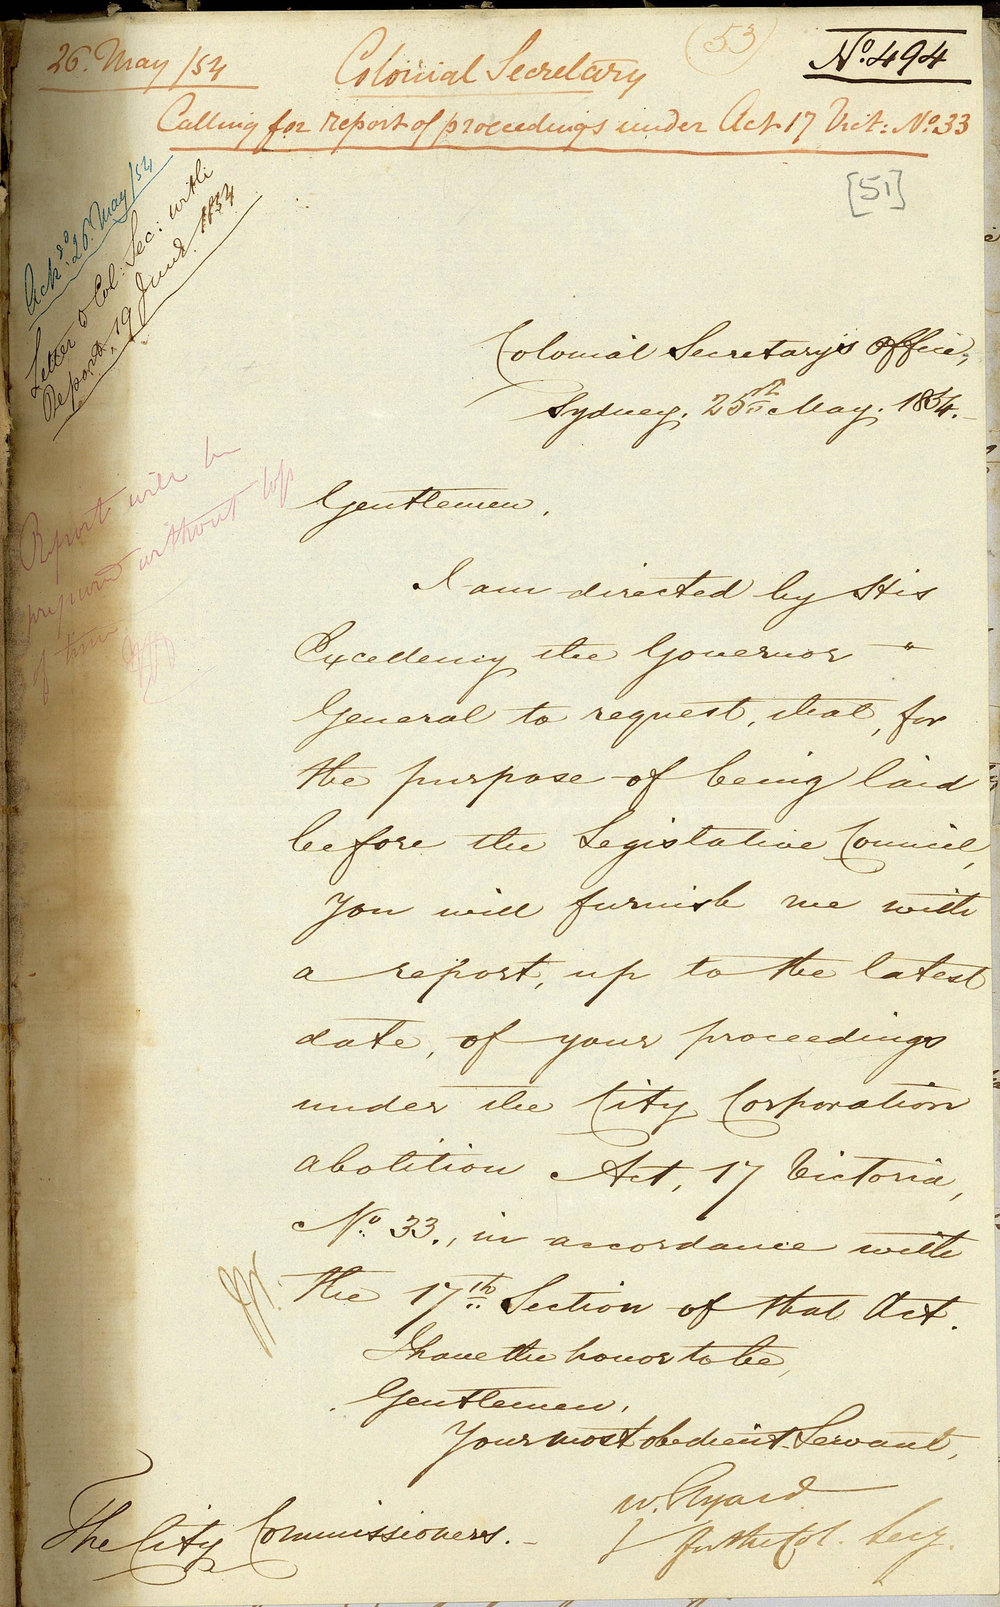 26. May /54
Colonial Secretary
(53)
No. 494
Calling for report of proceedings under Act 17 Vict: No. 33
[51]
Ackd. 26. May /54
Letter to Col: Sec: with
Report, 19 June 1854
Colonial Secretary's Office,
Sydney. 25th May. 1854.
Report will be
prepared without loss
of time
Gentlemen,
I am directed by His
Excellency the Governor "
General to request, that, for
the purpose of being laid
before the Legislative Council,
you will furnish me with
a report, up to the latest
date, of your proceedings
under the City Corporation
abolition Act, 17 Victoria,
No. 33., in accordance with
the 17th Section of that Act.
I have the honor to be,
Gentlemen,
Your most obedient Servant,
W. Elyard
for the Col. Secy.
The City Commissioners.